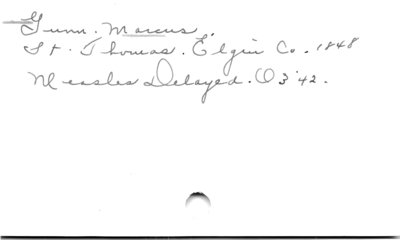 Gunn. Marcus.
St. Thomas. Elgin Co. 1848
Measles Delayed. O 3 '42.